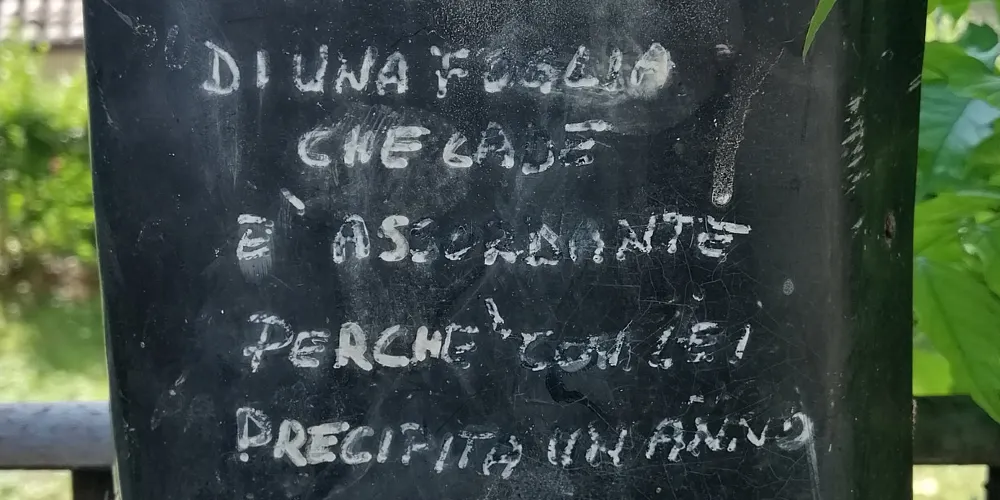 DI UNA FOGLIA
CHE CADE
È ASSORDANTE
PERCHÈ CON LEI
PRECIPITA UN ANNO